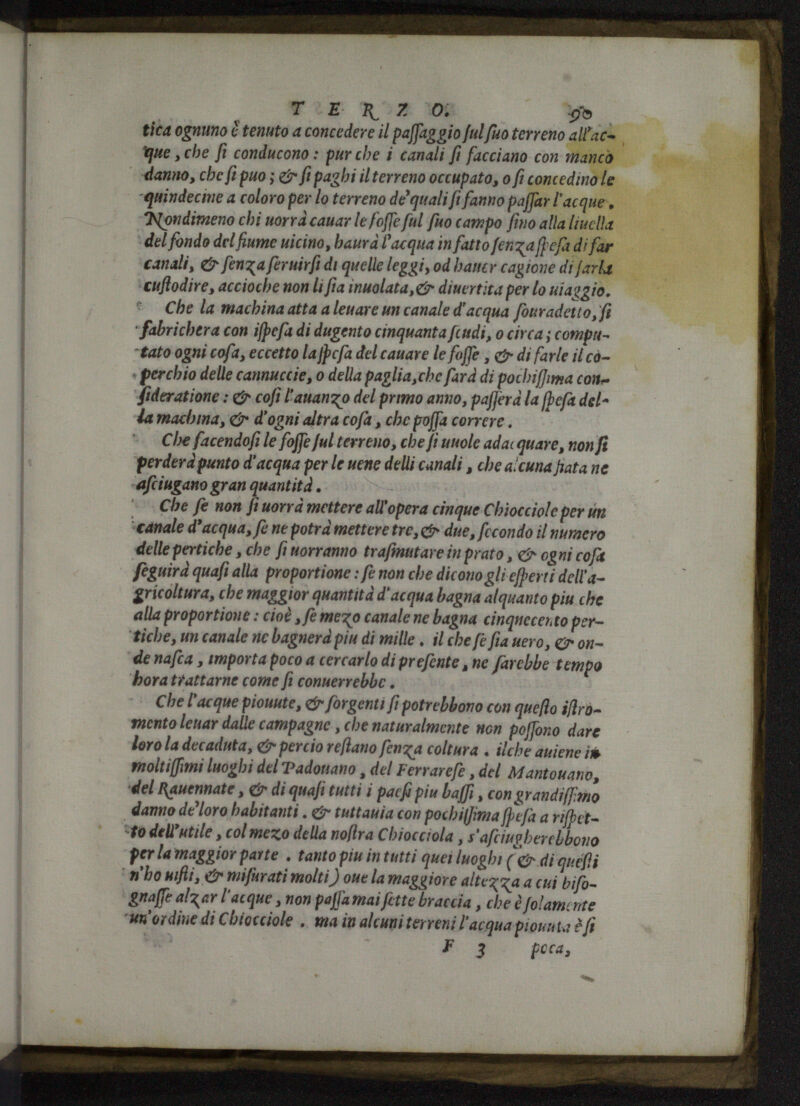 T E R Z O. 90
tica ognuno è tenuto a concedere il paſſaggio ſul ſuo terreno all'ac-
que, che ſi conducono: pur che i canali ſi facciano con manco
danno, che ſi puo; & ſi paghi il terreno occupato, o ſi concedino le
quindecine a coloro per lo terreno de'quali ſi fanno paſſar l'acque.
Nondimeno chi uorrà cauar le foſſe ſul ſuo campo fino alla liuella
del fondo del fiume uicino, haurà l'acqua in fatto ſenza ſpeſa di far
canali, & ſenza ſeruirſi di quelle leggi, od hauer cagione di farla
cuſtodire, accioche non li ſia inuolata, & diuertita per lo uiaggio.
Che la machina atta a leuare un canale d'acqua ſouradetto, ſi
fabricherà con iſpeſa di dugento cinquanta ſcudi, o circa; compu-
tato ogni coſa, eccetto la ſpeſa del cauare le foſſe, & di farle il co-
perchio delle cannuccie, o della paglia, che ſarà di pochiſſima con-
ſideratione: & coſi l'auanzo del primo anno, paſſerà la ſpeſa del-
la machina, & d'ogni altra coſa, che poſſa correre.
Che facendoſi le foſſe ſul terreno, che ſi uuole adacquare, non ſi
perderà punto d'acqua per le uene delli canali, che alcuna fiata ne
aſciugano gran quantità.
Che ſe non ſi uorrà mettere all'opera cinque Chiocciole per un
canale d'acqua, ſe ne potrà mettere tre, & due, ſecondo il numero
delle pertiche, che ſi uorranno traſmutare in prato, & ogni coſa
ſeguirà quaſi alla proportione: ſe non che dicono gli eſperti dell'a-
gricoltura, che maggior quantità d'acqua bagna alquanto piu che
alla proportione: cioè, ſe mezo canale ne bagna cinquecento per-
tiche, un canale ne bagnerà piu di mille. il che ſe ſia uero, & on-
de naſca, importa poco a cercarlo di preſente, ne ſarebbe tempo
hora trattarne come ſi conuerrebbe.
Che l'acque piouute, & ſorgenti ſi potrebbono con queſto iſtro-
mento leuar dalle campagne, che naturalmente non poſſono dare
loro la decaduta, & percio reſtano ſenza coltura. ilche auiene in
moltiſſimi luoghi del Padouano, del Ferrareſe, del Mantouano,
del Rauennate, & di quaſi tutti i paeſi piu baſſi, con grandiſſimo
danno de'loro habitanti. & tuttauia con pochiſſima ſpeſa a riſpet-
to dell'utile, col mezo della noſtra Chiocciola, s'aſciugherebbono
per la maggior parte. tanto piu in tutti quei luoghi (& di queſti
n'ho uiſti, & miſurati molti) oue la maggiore altezza a cui biſo-
gnaſſe alzar l'acque, non paſſa mai ſette braccia, che è ſolamente
un'ordine di Chiocciole. ma in alcuni terreni l'acqua piouuta è ſi
F 3 poca,